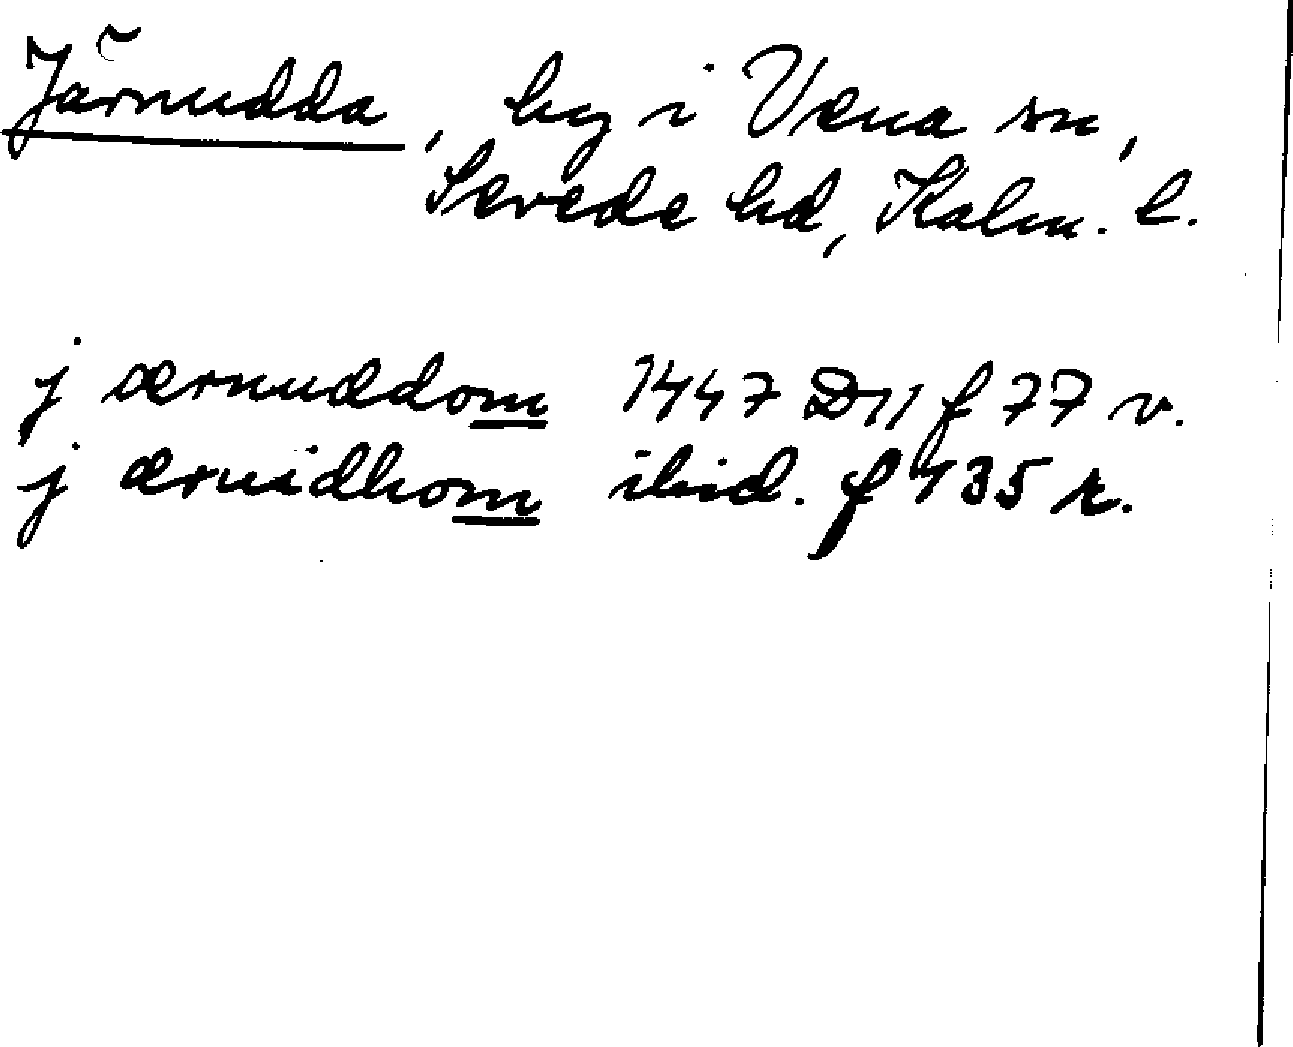 Järnudda, by i Vena sn,
Sevede hd, Kalm. l.
j ærnuddom 1447 D11 f 77 v.
j ærnidhom ibid. f 135 r.